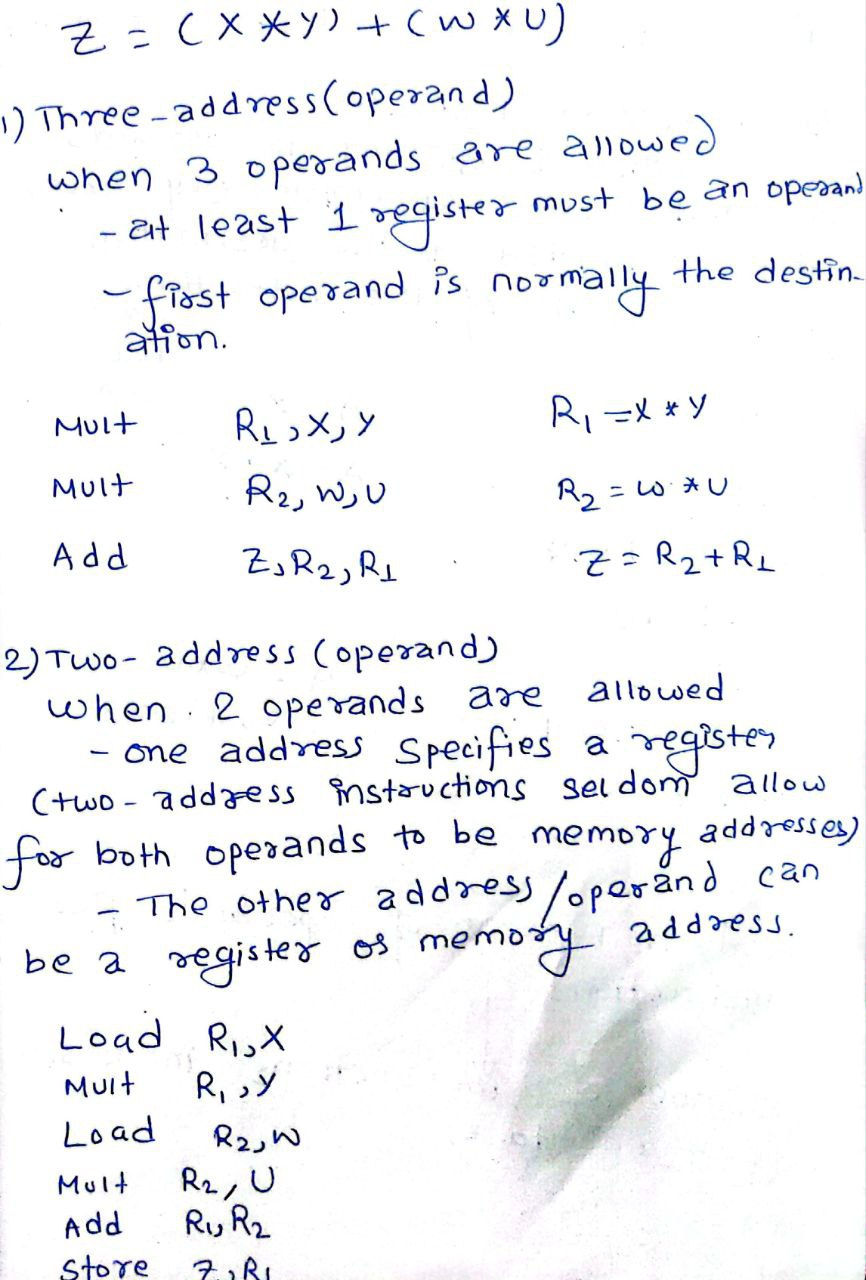 Z = (X * Y) + (W * U)
1) Three-address (operand)
when 3 operands are allowed
- at least 1 register must be an operand
- first operand is normally the destin-
ation.
Mult R1, X, Y R1 = X * Y
Mult R2, W, U R2 = W * U
Add Z, R2, R1 Z = R2 + R1
2) Two-address (operand)
when 2 operands are allowed
- one address specifies a register
(two-address instructions seldom allow
for both operands to be memory addresses)
- The other address/operand can
be a register or memory address.
Load R1, X
Mult R1, Y
Load R2, W
Mult R2, U
Add R1, R2
Store Z, R1